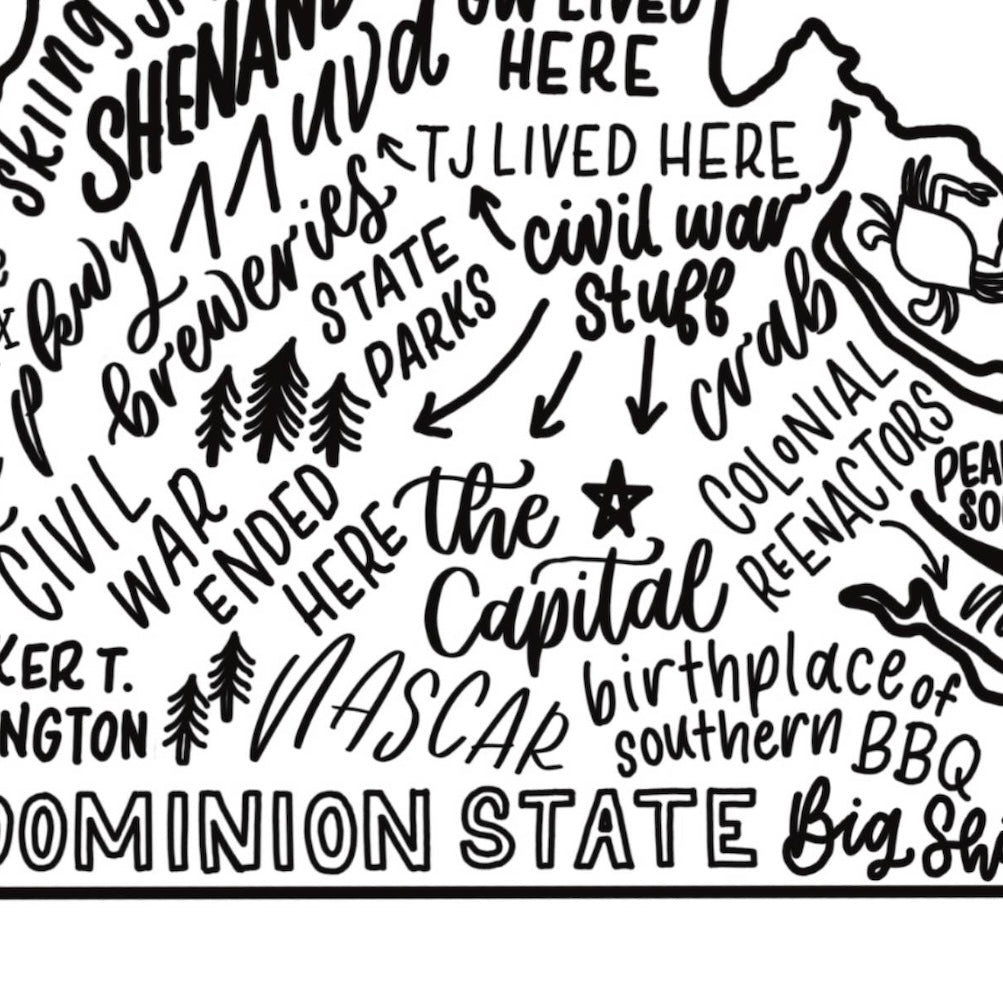 skiing
SHENAND
GW LIVED
HERE
uva
TJ LIVED HERE
pkwy
breweries
STATE
PARKS
civil war
stuff
crab
COLONIAL
REENACTORS
PEA
SO
CIVIL
WAR
ENDED
HERE
the
Capital
KER T.
NGTON
NASCAR
birthplace of
southern BBQ
DOMINION STATE
Big Shi